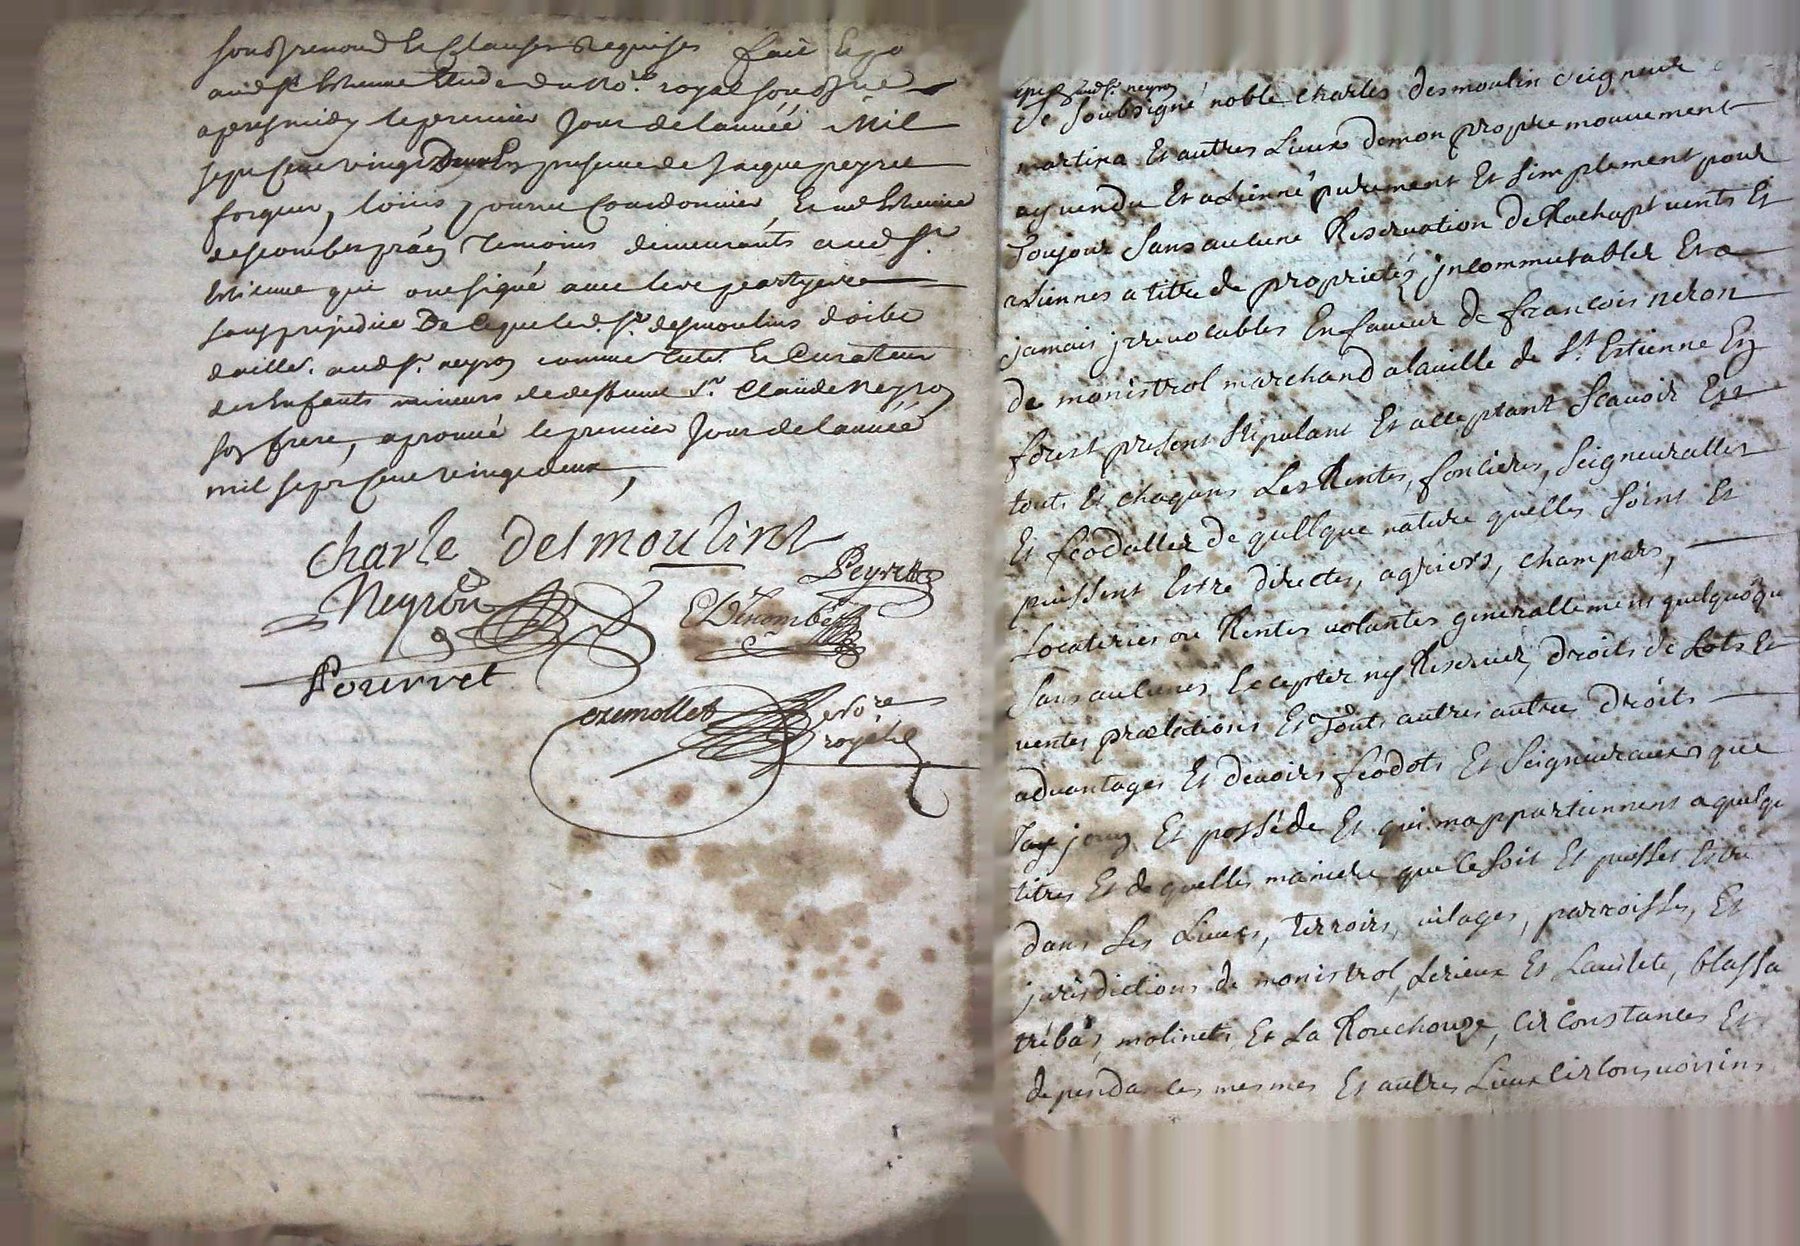 soub renond et Clauses Requises fait et
aud st Estienne Etude du no.re royal soub.né
apres midy le premier Jour de l'année Mil
sept Cent vingt Deux En presence de Jacque peyret
forgeur, loüis pourret Courdonnier, Et
descombes temoins demeurants aud st
Estienne qui ont signé avec les partyes
sans prejudice De ce que led. sr. desmoulins doibt
d'ailles. aud sr. neyron comme tuts. Et Curateur
des Enfants mineurs de deffunt Sr. Claude Neyron
son frere, aprouvé le premier Jour de l'année
mil sept Cent vingt deux,
Charle desmoulins
Neyron
Peyret
Descombes
Pourret
eximollet
no.re
royal
aud sr. neyron
Je soubsigné noble charles desmoulin seigneur
martina Et autres Lieux demon propre mouuement
ay uendu Et alienné purement Et simplement pour
Toujour sans aucune Reservation de Rachapt uents Et
a titre de proprietés jncommutables Et a
jamais jrreuocables En faueur de francois neron
de monistrol marchand a la uille de St. Estienne En
forest present stipulant Et acceptant Scauoir Est
touts Et chaquns Les Rentes, foncieres, seigneuralles
Et feodalles de quelque nature quelles soint Et
puissent Estre directes, agriers, champars,
Locateries ou Rentes volantes generallement quelquoqu
sans aucunes Excepter ny Reserver, droits de Lots Et
ventes praelations Et touts autres autres droits
aduantages Et deuoirs feodots Et Seigneuraux que
Jay jouy Et possede Et qui mappartiennent a quelqu
titres Et de quelles maniere que ce soit Et puisses Estre
dans Les Lieux, terroirs, uilages, parroisses, Et
jurisdictions de monistrol, Lirieux Et Lauilete, blassa
trebas, molinets Et La Rouchouze, circonstances Et
dependances mesmes Et autres Lieux circonuoisins